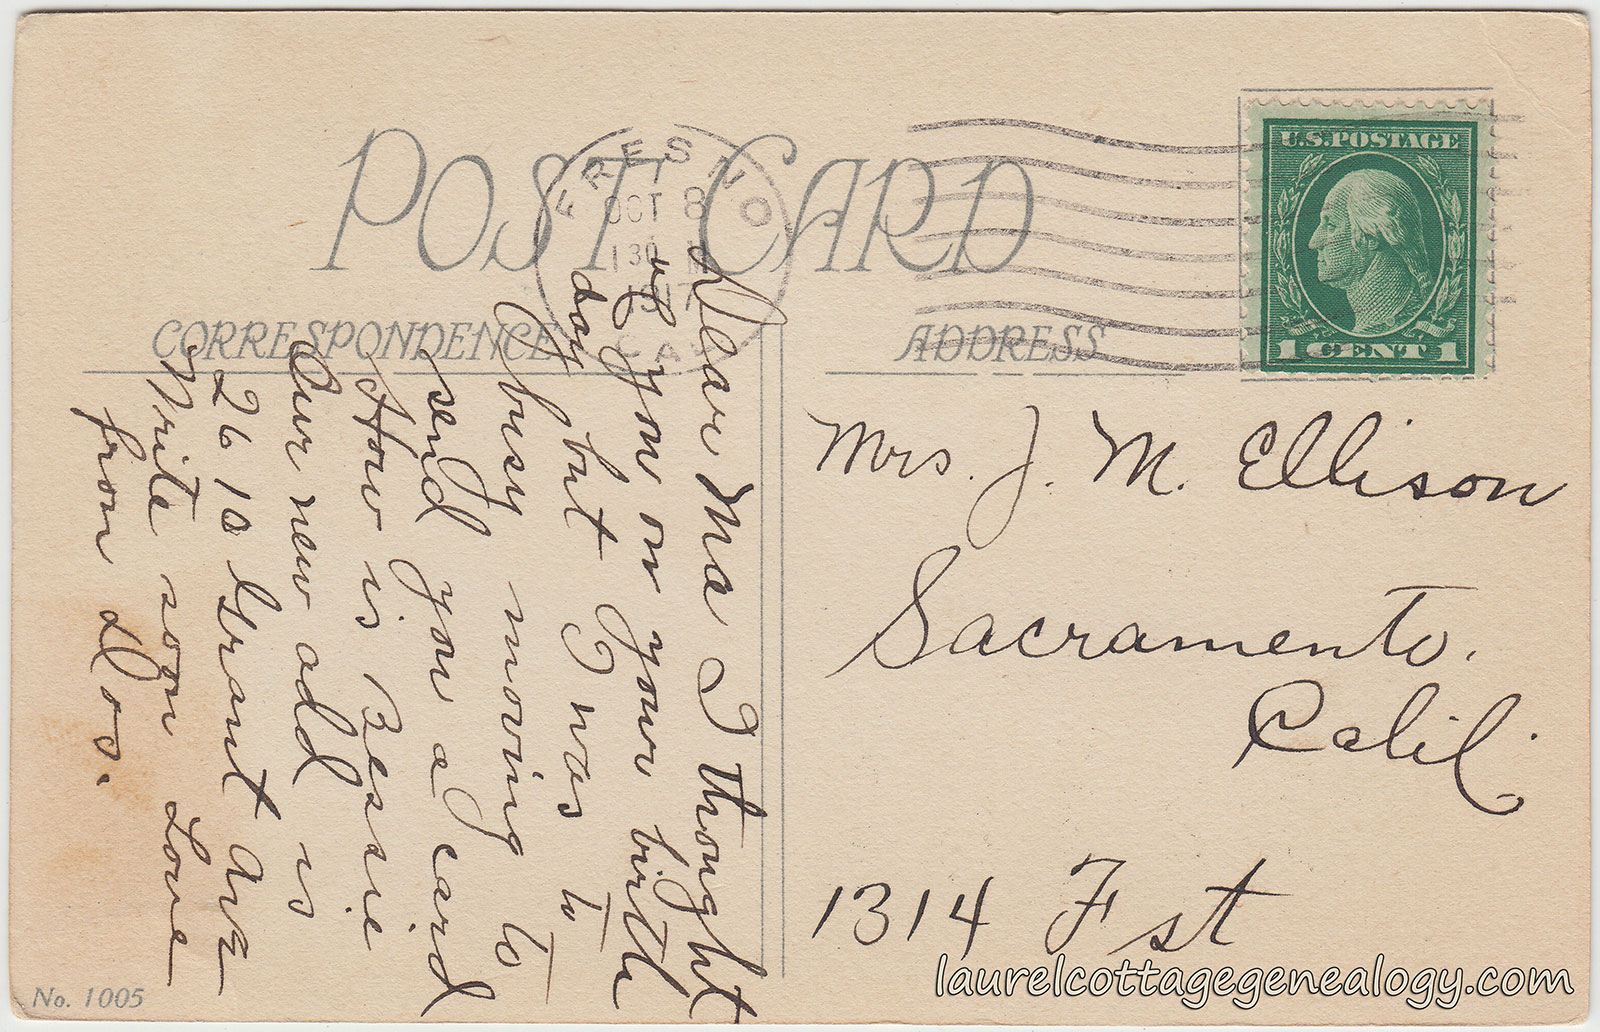 POST CARD
FRESNO
OCT 8
130 M
1917
CAL
U.S. POSTAGE
1 CENT 1
CORRESPONDENCE
ADDRESS
Dear Ma I thought
of you on your birth
day but I was to
busy moving to
send you a card
How is Bessie
Our new add is
2610 Grant Ave
Write soon Love
from Dos.
Mrs. J. M. Ellison
Sacramento.
Calif.
1314 F st
No. 1005
laurelcottagegenealogy.com